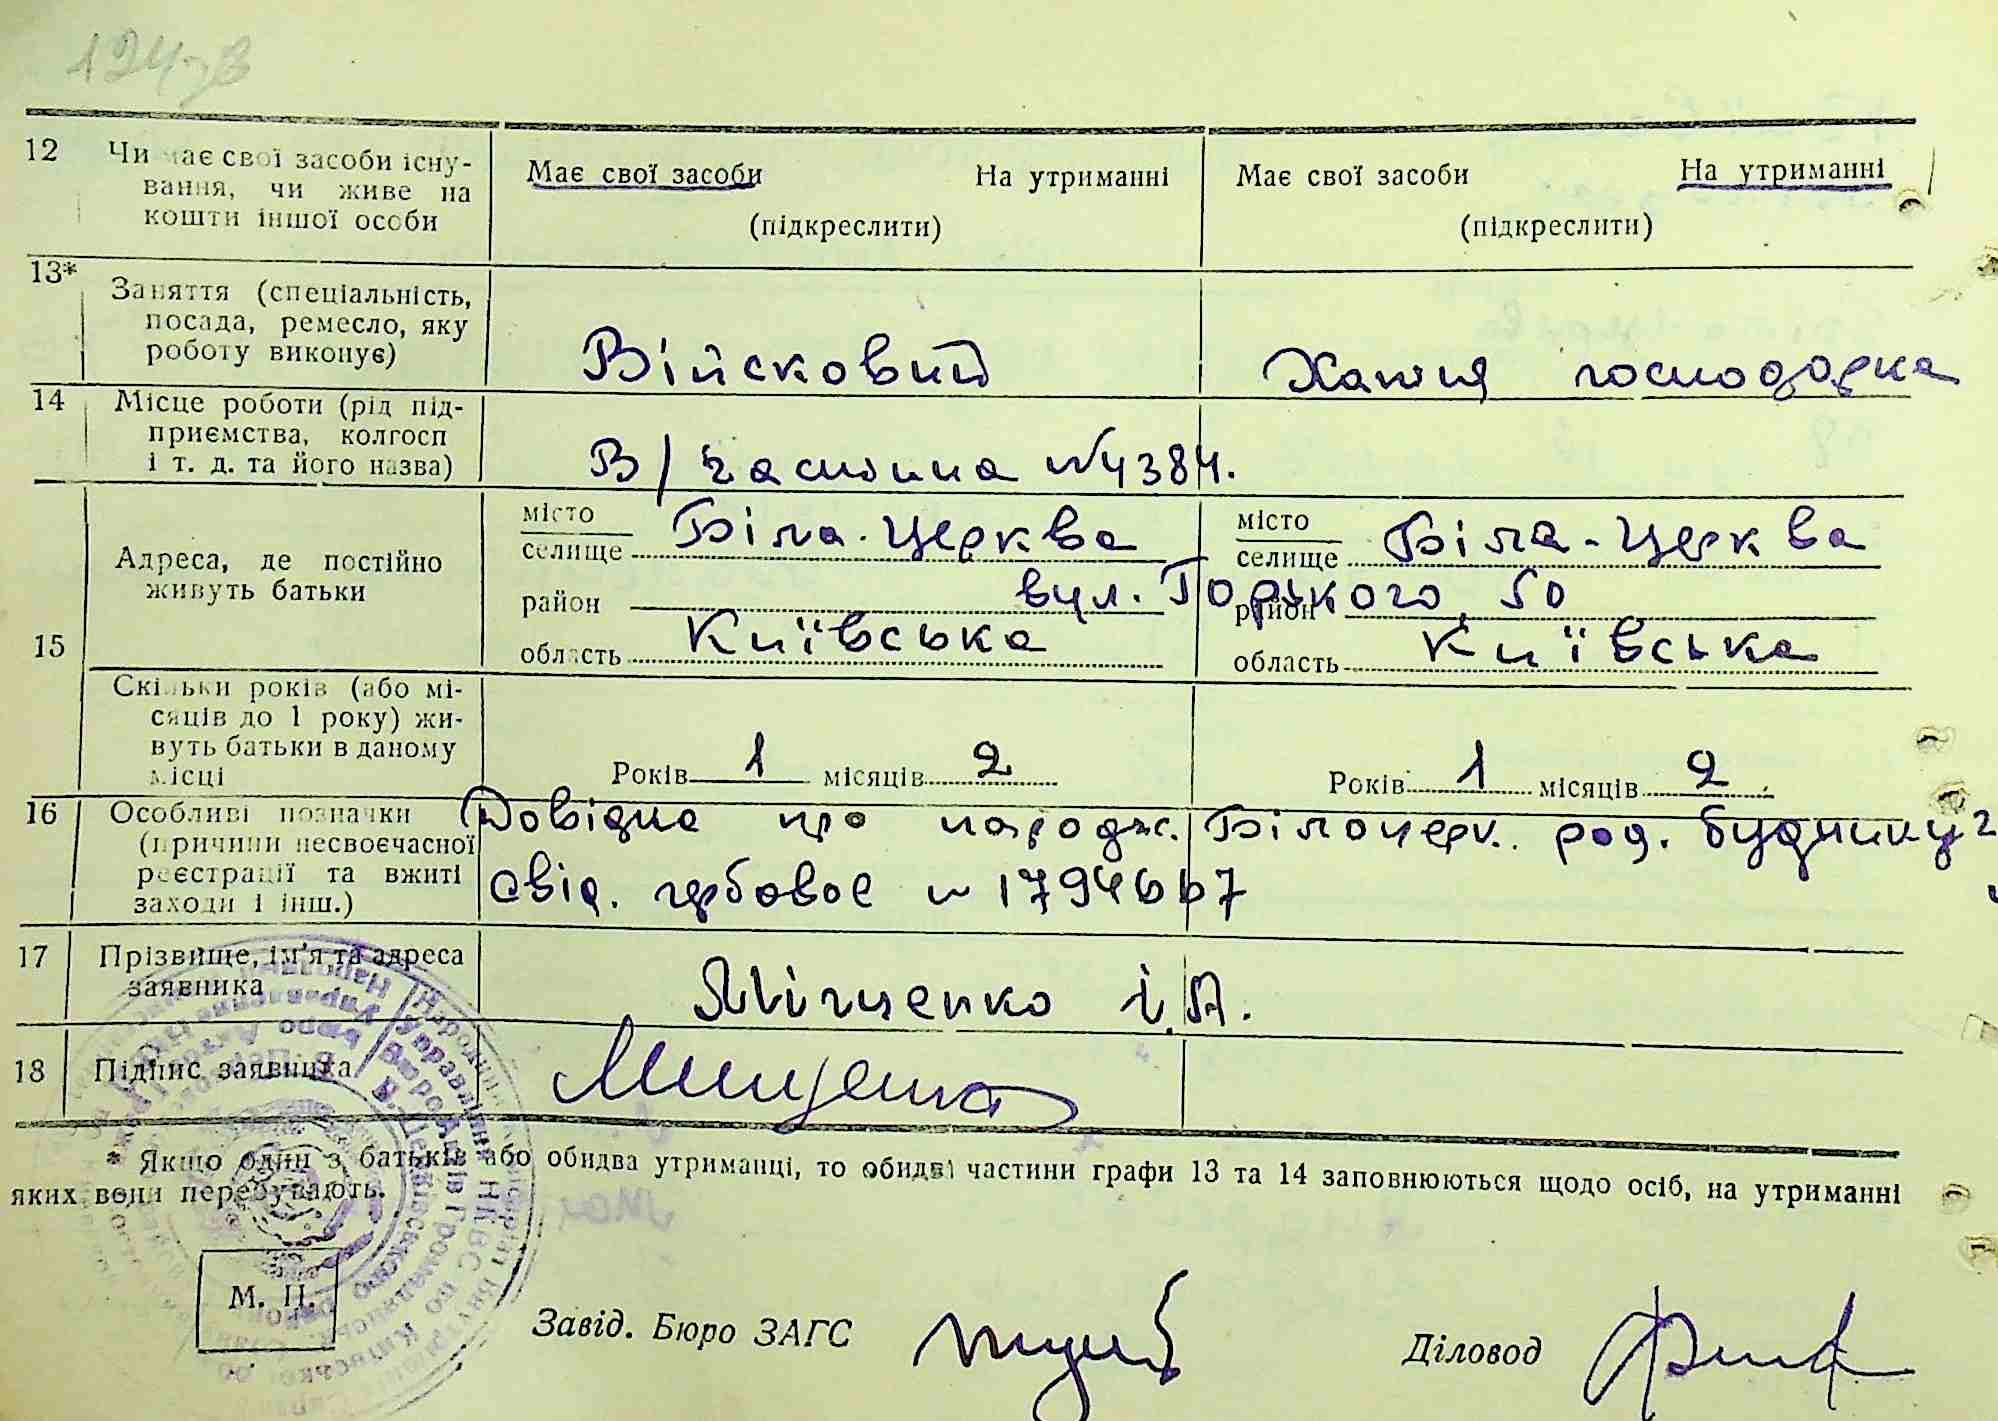 124-зв
12 Чи має свої засоби існу-
вання, чи живе на
кошти іншої особи
Має свої засоби На утриманні
(підкреслити)
Має свої засоби На утриманні
(підкреслити)
13* Заняття (спеціальність,
посада, ремесло, яку
роботу виконує)
Військовий
Хатня господарка
14 Місце роботи (рід під-
приємства, колгосп
і т. д. та його назва)
В/частина №4384.
15 Адреса, де постійно
живуть батьки
місто
селище Біла-Церква
район вул. Горького, 50
область Київська
місто
селище Біла-Церква
район
область Київська
Скільки років (або мі-
сяців до 1 року) жи-
вуть батьки в даному
місці
Років 1 місяців 2
Років 1 місяців 2
16 Особливі позначки
(причини несвоєчасної
реєстрації та вжиті
заходи і інш.)
Довідка про народж. Білоцерк. род. будинку
Свід. гербовое № 1794667
17 Прізвище, ім'я та адреса
заявника
Міщенко І.А.
18 Підпис заявника
Мищенко
* Якщо один з батьків або обидва утриманці, то обидві частини графи 13 та 14 заповнюються щодо осіб, на утриманні
яких вони перебувають.
М. П.
Завід. Бюро ЗАГС
Діловод